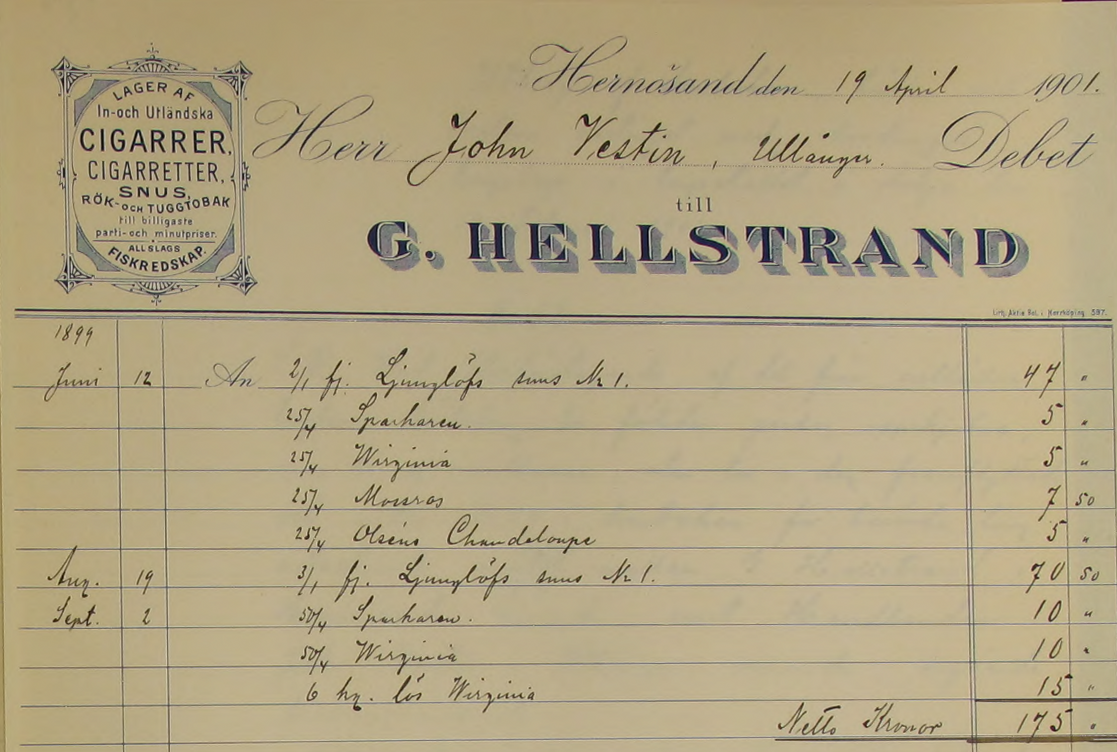 LAGER AF
In- och Utländska
CIGARRER,
CIGARRETTER,
SNUS,
RÖK- OCH TUGGTOBAK
till billigaste
parti- och minutpriser.
ALL SLAGS
FISKREDSKAP.
Hernösand den 19 April 1901.
Herr John Vestin, Ullånger. Debet
till
G. HELLSTRAND
Lith. Aktie Bol. i Norrköping 597.
1899
Juni 12 An 2/1 fj. Ljunglöfs snus No 1. 47 "
25/4 Sparbaren. 5 "
25/4 Wirginia 5 "
25/4 Mossros 7 50
25/4 Olséns Chandeloupe 5 "
Aug. 19 3/1 fj. Ljunglöfs snus No 1. 70 50
Sept. 2 50/4 Sparbaren. 10 "
50/4 Wirginia 10 "
6 hg. lös Wirginia 15 "
Netto Kronor 175 "